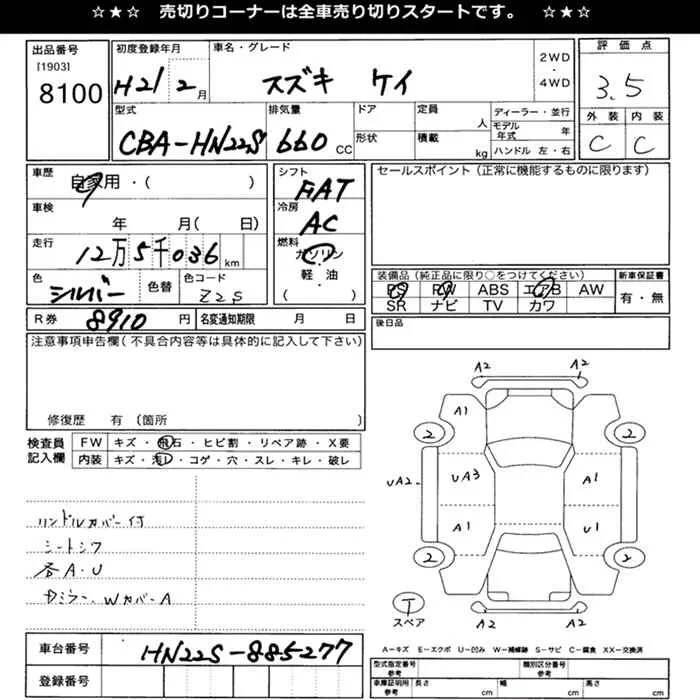 ☆★☆ 売切りコーナーは全車売り切りスタートです。 ☆★☆
出品番号
[1903]
8100
初度登録年月
H21 2月
車名・グレード
スズキ ケイ
2WD
・
4WD
評価点
3.5
外装 内装
C C
型式
CBA-HN22S
排気量
660 CC
ドア
形状
定員
人
積載
kg
ディーラー・並行
モデル年式 年
ハンドル 左・右
車歴
自家用・( )
車検
年 月( 日)
走行
12万5千036 km
色
シルバー
色替
色コード
Z2S
シフト
FAT
冷房
AC
燃料
ガソリン
軽・油
( )
セールスポイント(正常に機能するものに限ります)
装備品(純正品に限り○をつけてください)
PS PW ABS エアB AW
SR ナビ TV カワ
新車保証書
有・無
R券 8910 円
名変通知期限 月 日
後日品
注意事項申告欄(不具合内容等は具体的に記入して下さい)
修復歴 有 (箇所 )
検査員
記入欄
FW キズ・飛石・ヒビ割・リペア跡・X要
内装 キズ・汚レ・コゲ・穴・スレ・キレ・破レ
ハンドルカバー付
シートシワ
各A・U
WカバーA
A2 A2
A1
2 2
UA2 UA3 A1
A1 U1
2 2
T
スペア
A2 A2
A-キズ E-エクボ U-凹み W-補修跡 S-サビ C-腐食 XX-交換済
車台番号
HN22S-885277
登録番号
型式指定番号
参考
類別区分番号
車庫証明用
参考
長さ cm
幅 cm
高さ cm